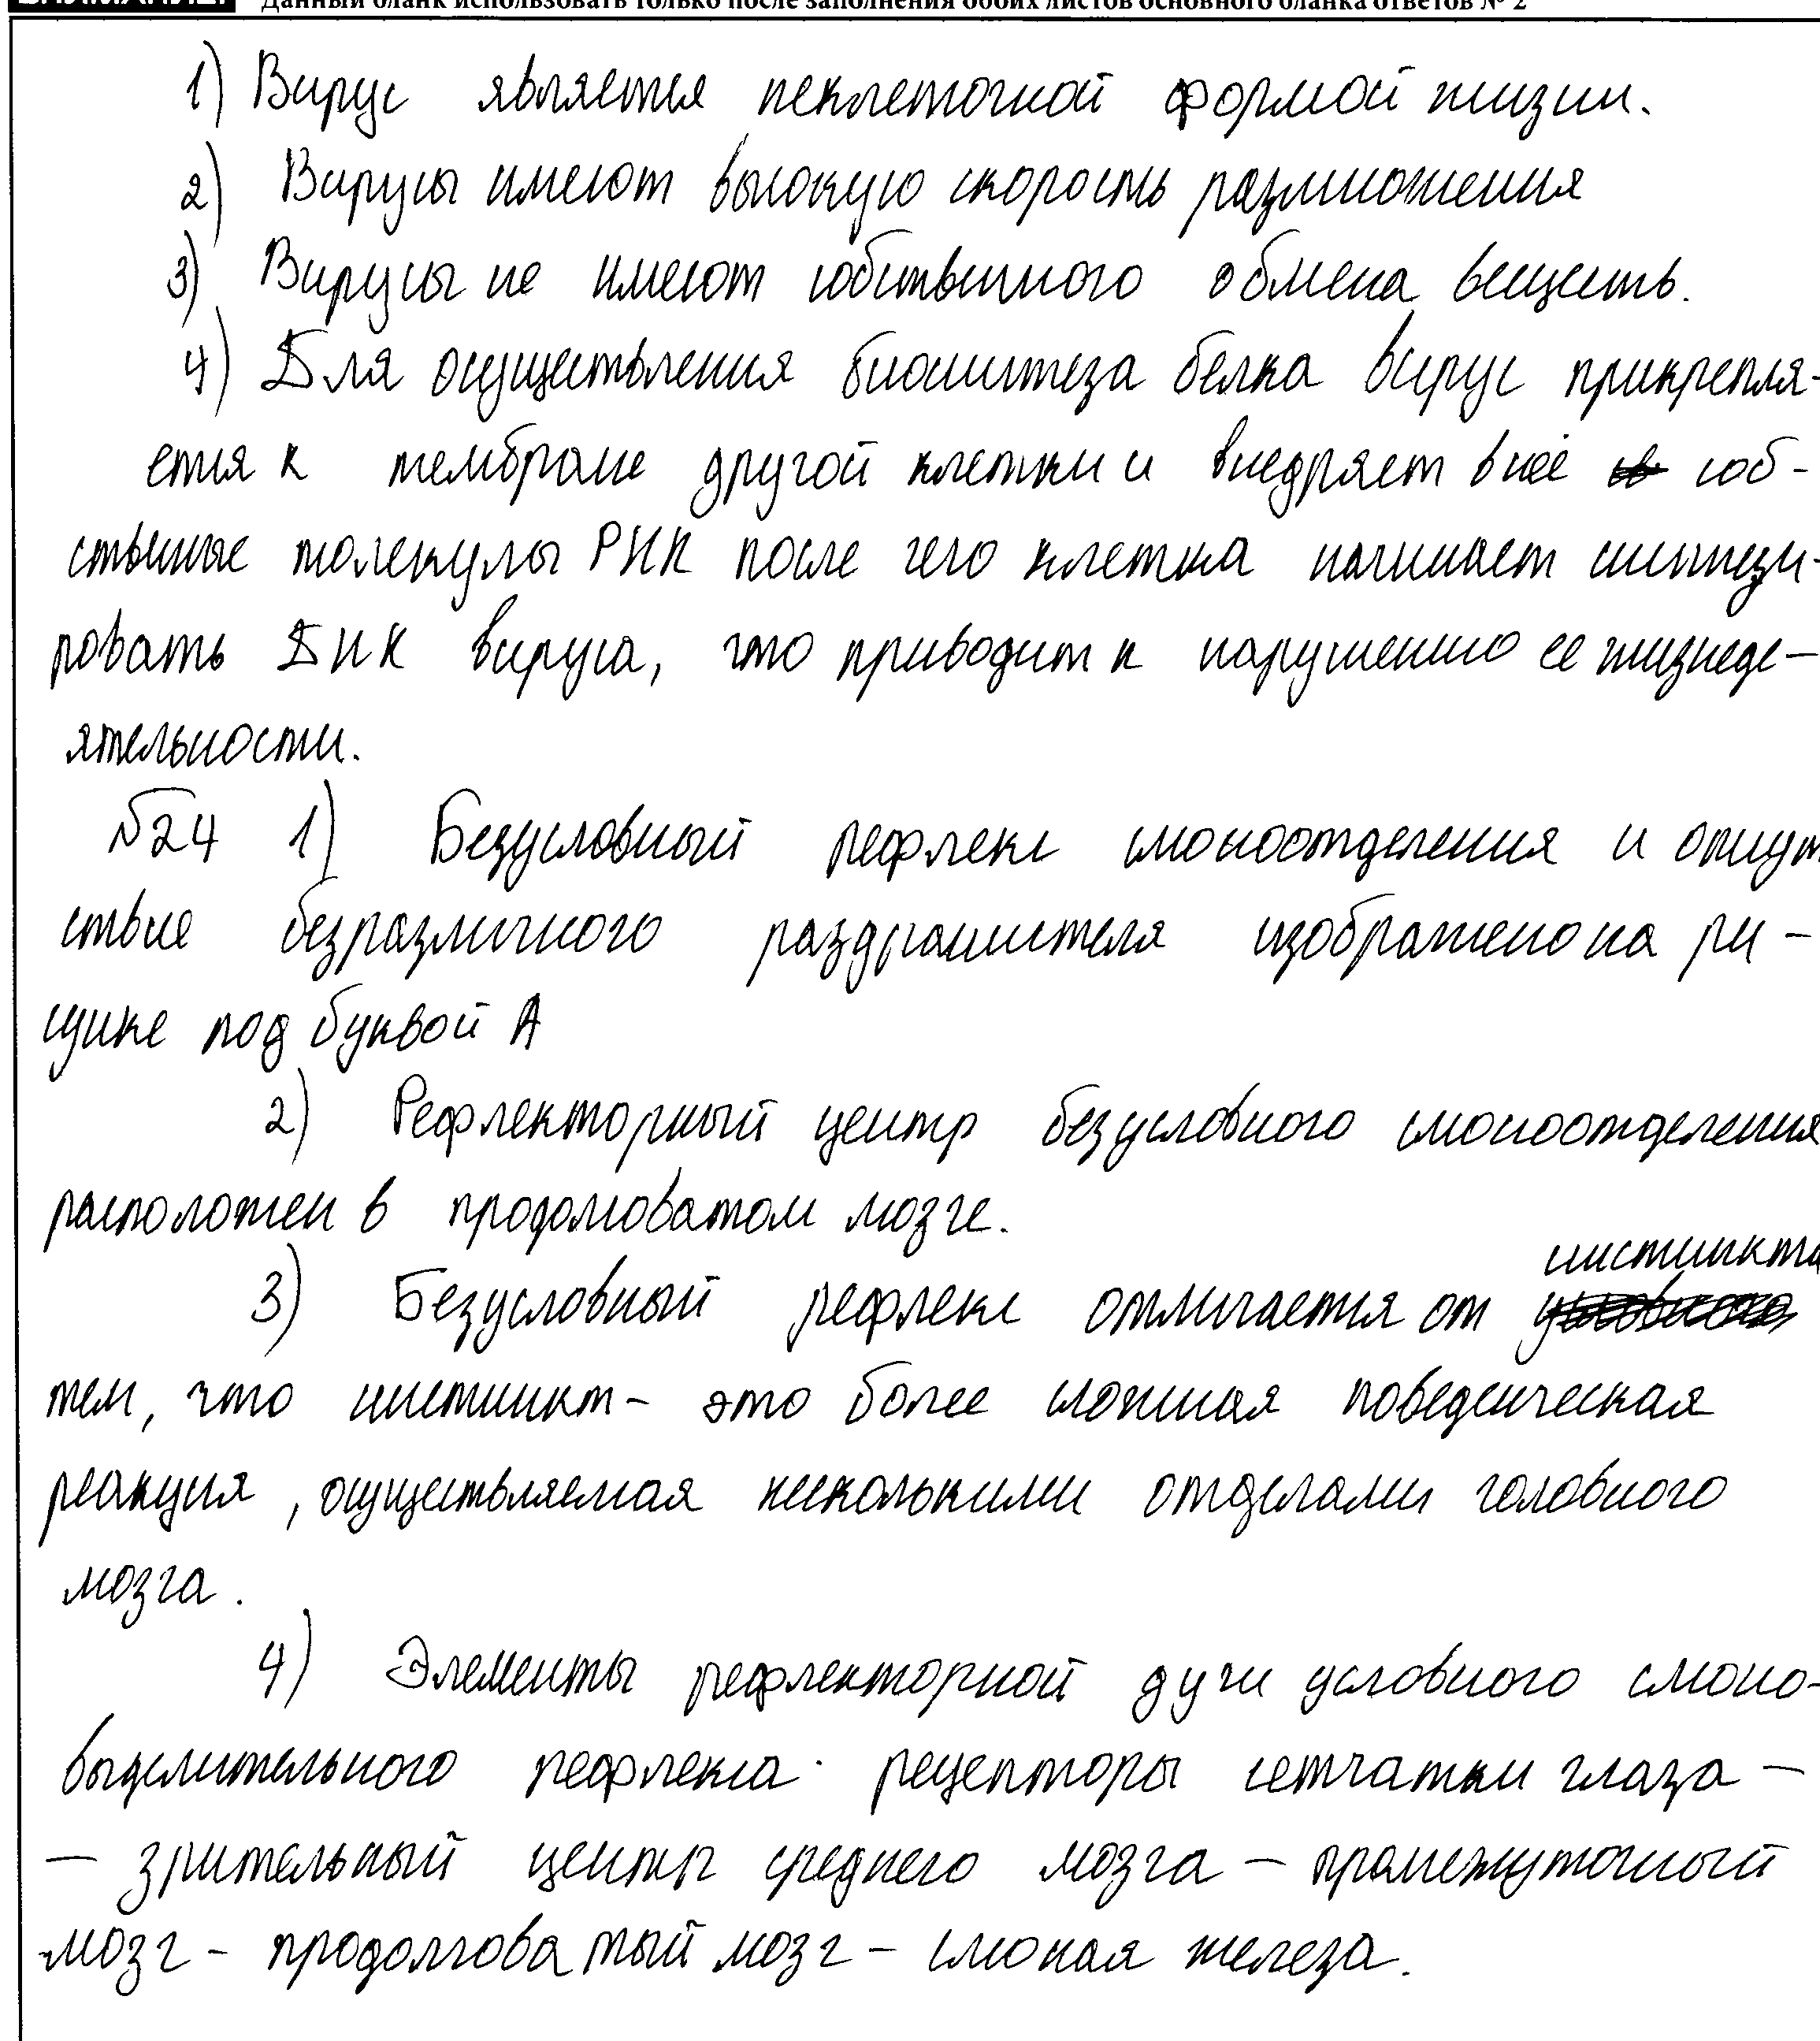 Данный бланк использовать только после заполнения обоих листов основного бланка ответов № 2
1) Вирус является неклеточной формой жизни.
2) Вирусы имеют высокую скорость размножения
3) Вирусы не имеют собственного обмена веществ.
4) Для осуществления биосинтеза белка вирус прикрепля-
ется к мембране другой клетки и внедряет в неё соб-
ственные молекулы РНК после чего клетка начинает синтези-
ровать ДНК вируса, что приводит к нарушению ее жизнеде-
ятельности.
№24 1) Безусловный рефлекс слюноотделения и отсут
ствие безразличного раздражителя изображено на ри-
сунке под буквой А
2) Рефлекторный центр безусловного слюноотделения
расположен в продолговатом мозге.
инстинкта
3) Безусловный рефлекс отличается от
тем, что инстинкт - это более сложная поведенческая
реакция, осуществляемая несколькими отделами головного
мозга.
4) Элементы рефлекторной дуги условного слюно-
выделительного рефлекса: рецепторы сетчатки глаза -
- зрительный центр среднего мозга - промежуточный
мозг - продолговатый мозг - слюная железа.